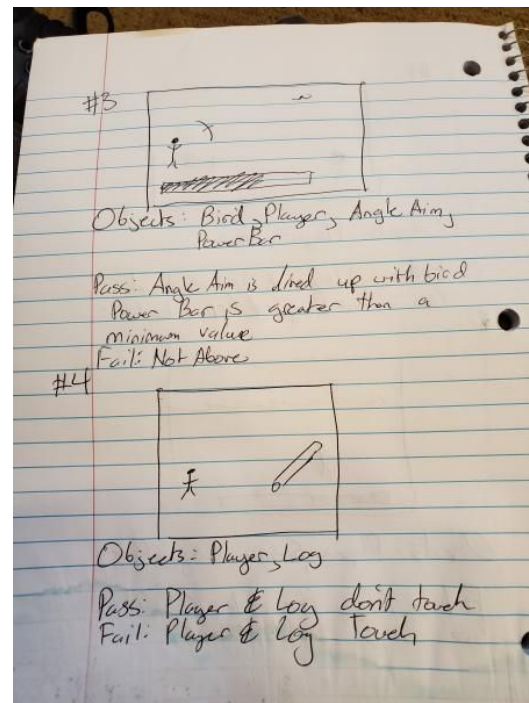 #3
Objects: Bird, Player, Angle Aim,
Power Bar
Pass: Angle Aim is lined up with bird
Power Bar is greater than a
minimum value
Fail: Not Above
#4
Objects: Player, Log
Pass: Player & Log don't touch
Fail: Player & Log touch